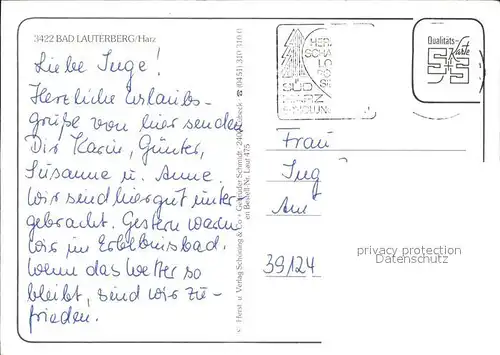 3422 BAD LAUTERBERG/Harz
Liebe Inge!
Herzliche Urlaubs-
grüße von hier senden
Dir Karin, Günter,
Susanne u. Anne.
Wir sind hier gut unter-
gebracht. Gestern waren
wir im Erlebnisbad.
Wenn das Wetter so
bleibt, sind wir zu-
frieden.
Horst u. Verlag Schöning & Co · Gebrüder Schmidt · 2400 Lübeck · ☎ (0451) 310 310
Bestell-Nr. Laut 475
SÜD
HARZ
Qualitäts-
Karte
Frau
Ing
Am
39124
privacy protection
Datenschutz